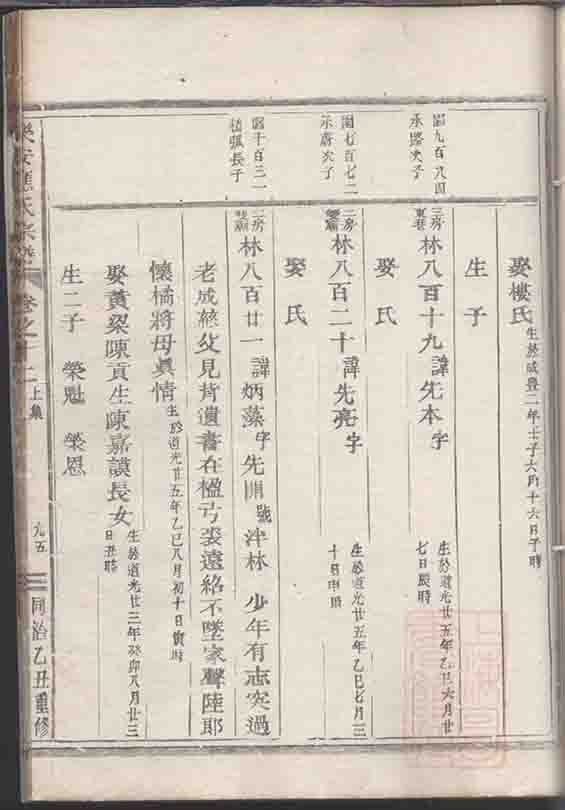 娶樓氏 生於咸豐二年壬子六月十六日子時
生子
圖九百八四
承璐次子
三房東巷 林八百十九 諱先本 字 生於道光廿五年乙巳六月廿七日辰時
娶氏
圖七百七二
承蔚次子
三房 林八百二十 諱先亮 字 生於道光廿五年乙巳七月三十日申時
娶氏
圖十百三一
長子
二房 林八百廿一 諱炳藻 字先 號泮林 少年有志突過
老成慈父見背遺書在楹弓裘遠紹不墜家聲陸郎
懷橘將母真情 生於道光廿五年乙巳八月初十日寅時
娶黃梁陳貢生陳嘉謨長女 生於道光廿三年癸卯八月廿三日丑時
生二子 榮魁 榮恩
氏宗譜 卷之十二 上集 九五 同治乙丑重修